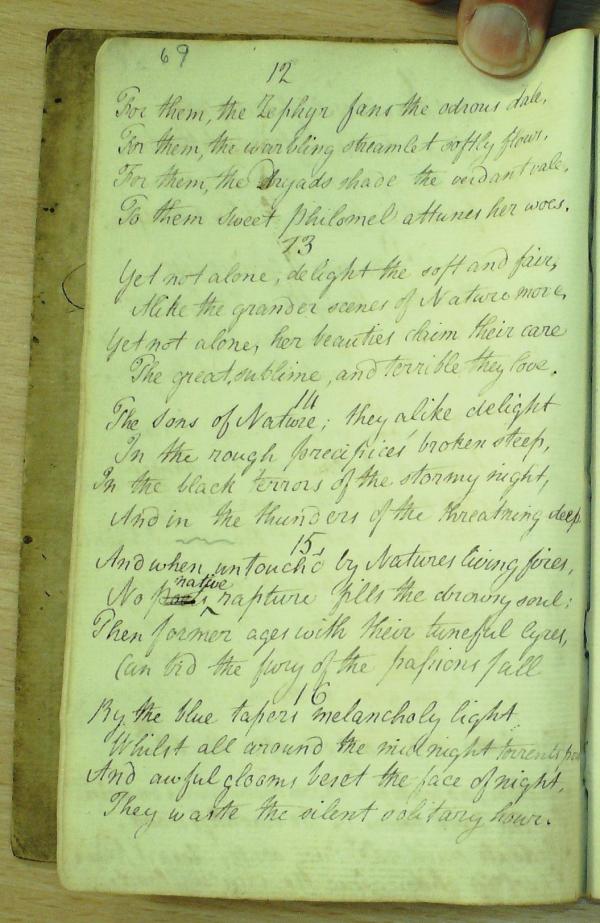 69
12
For them, the Zephyr fans the odrous dale,
For them, the warbling streamlet softly flows,
For them, the Dryads shade the verdant vale,
To them sweet Philomel attunes her woes.
13
Yet not alone, delight the soft and fair,
Alike the grander scenes of Nature move,
Yet not alone, her beauties claim their care
The great, sublime, and terrible they love.
14
The sons of Nature; they alike delight
In the rough precipices' broken steep,
In the black terrors of the stormy night,
And in the thunders of the threatning deep.
15
And when, untouch'd by Natures living fires,
native
No rapture fills the drowsy soul:
Then former ages with their tuneful lyres,
Can bid the fury of the passions fall
16
By the blue tapers melancholy light
Whilst all around the midnight torrents
And awful glooms beset the face of night,
They waste the silent solitary hour.